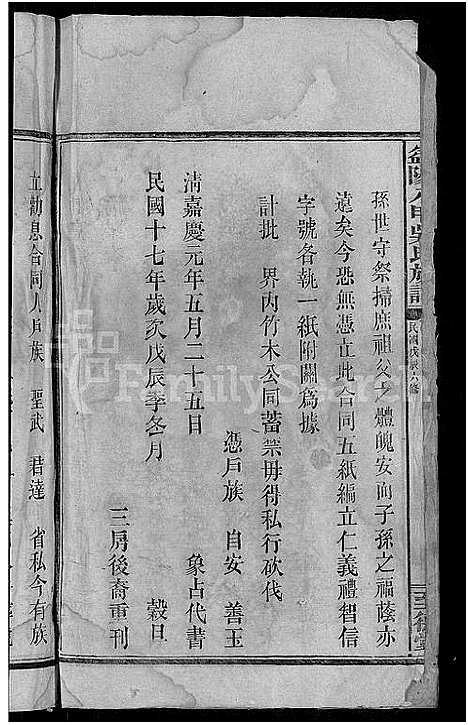 益陽八甲吳氏族譜
民國戊辰六修
三讓堂
孫世守祭掃庶祖父之體魄安而子孫之福蔭亦
遠矣今恐無憑立此合同五紙編立仁義禮智信
字號各執一紙附關爲據
計批　界內竹木公同蓄禁毋得私行砍伐
憑戶族　自安　善玉
象占代書
清嘉慶元年五月二十五日
民國十七年歲次戊辰季冬月　穀旦
三房後裔重刊
立勸息合同人戶族　聖武　君達　省私今有族
FamilySearch